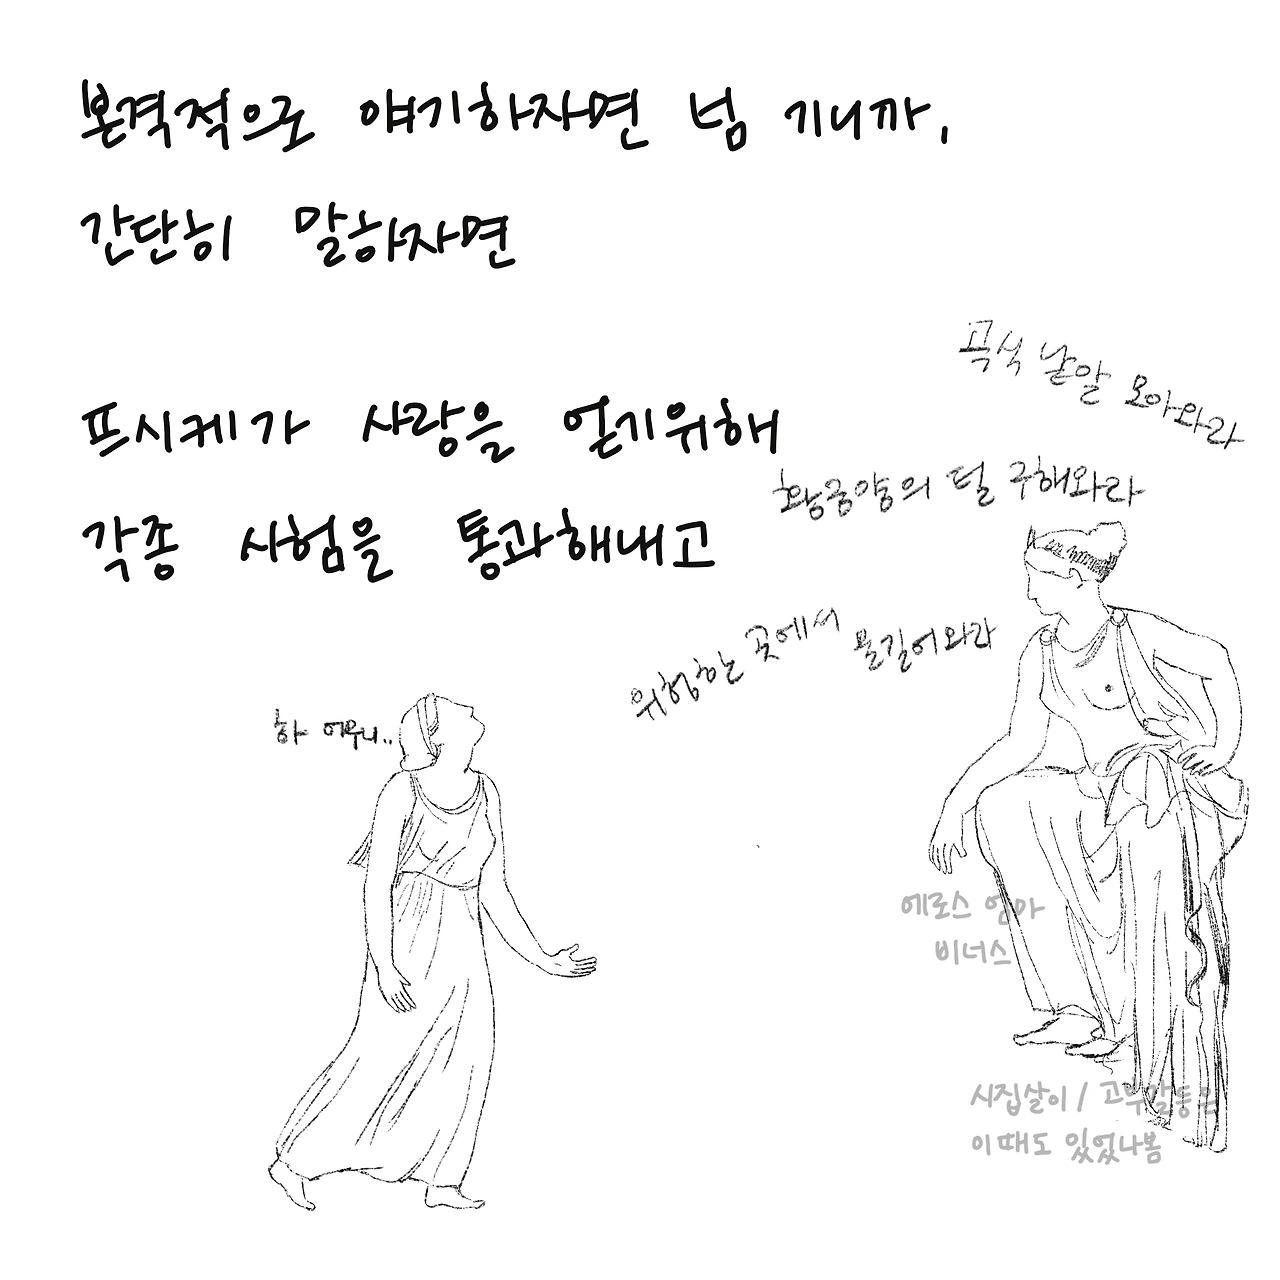 본격적으로 얘기하자면 넘 기니까,
간단히 말하자면
프시케가 사랑을 얻기위해
각종 시험을 통과해내고
곡식 낱알 모아와라
황금양의 털 구해와라
위험한 곳에서 물길어와라
하 어무니..
에로스 엄마
비너스
시집살이 / 고부갈등은
이때도 있었나봄